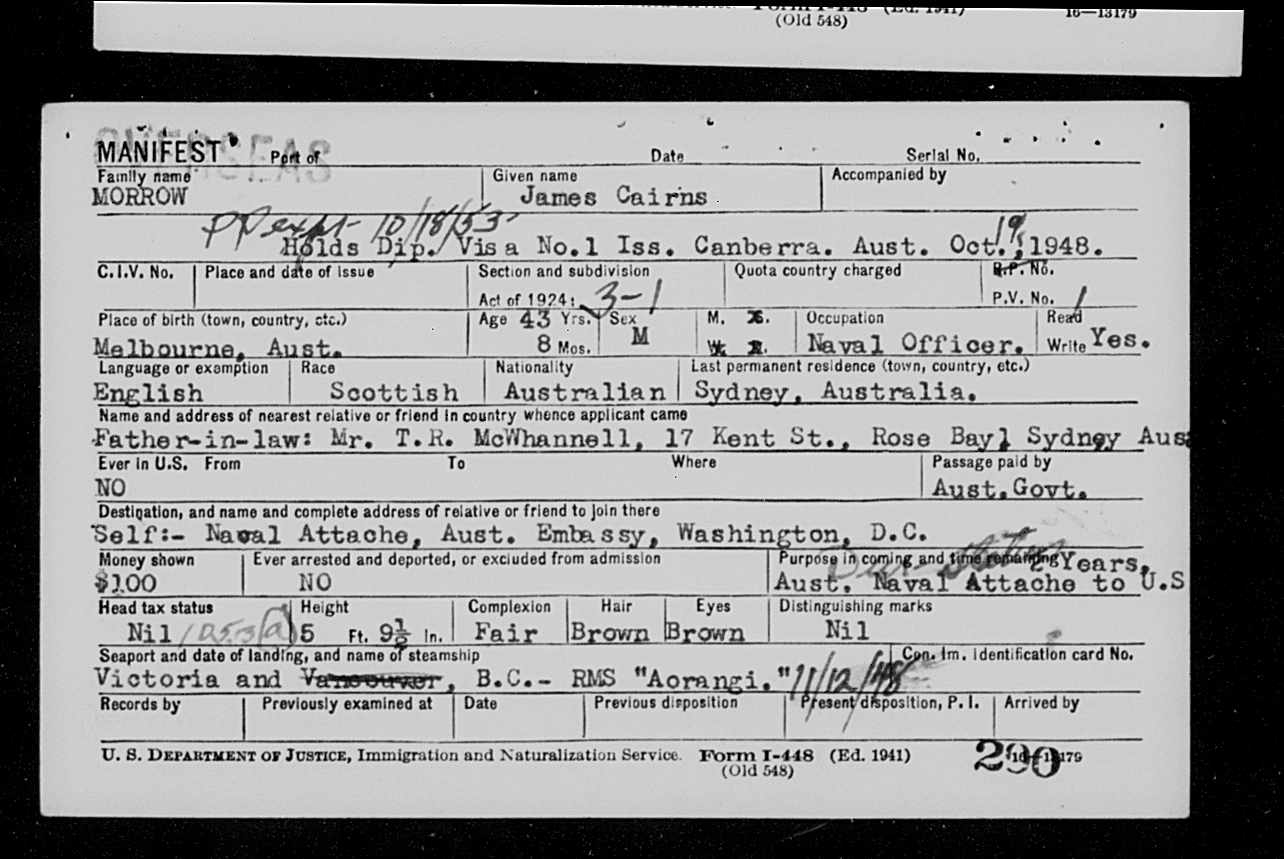 (Ed. 1941)
16—13179
(Old 548)
OVERSEAS
MANIFEST Port of Date Serial No.
Family name Given name Accompanied by
MORROW James Cairns
PP expt 10/18/53
Holds Dip. Visa No.1 Iss. Canberra. Aust. Oct. 19, 1948.
C.I.V. No. Place and date of issue Section and subdivision Quota country charged R.P. No.
Act of 1924: 3-1 P.V. No. 1
Place of birth (town, country, etc.) Age 43 Yrs. Sex M. S. Occupation Read
Melbourne, Aust. 8 Mos. M W. Naval Officer. Write Yes.
Language or exemption Race Nationality Last permanent residence (town, country, etc.)
English Scottish Australian Sydney, Australia.
Name and address of nearest relative or friend in country whence applicant came
Father-in-law: Mr. T.R. McWhannell, 17 Kent St., Rose Bay, Sydney Aus
Ever in U.S. From To Where Passage paid by
NO Aust.Govt.
Destination, and name and complete address of relative or friend to join there
Self:- Naval Attache, Aust. Embassy, Washington, D.C.
Money shown Ever arrested and deported, or excluded from admission Purpose in coming and time remaining 2 Years.
$100 NO Aust. Naval Attache to U.S
Head tax status Height Complexion Hair Eyes Distinguishing marks
Nil 5 Ft. 9½ In. Fair Brown Brown Nil
Seaport and date of landing, and name of steamship Con. Im. Identification card No.
Victoria and Vancouver, B.C.- RMS "Aorangi." 11/12/48
Records by Previously examined at Date Previous disposition Present disposition, P. I. Arrived by
U. S. DEPARTMENT OF JUSTICE, Immigration and Naturalization Service. Form I-448 (Ed. 1941) 16—13179
(Old 548)
290